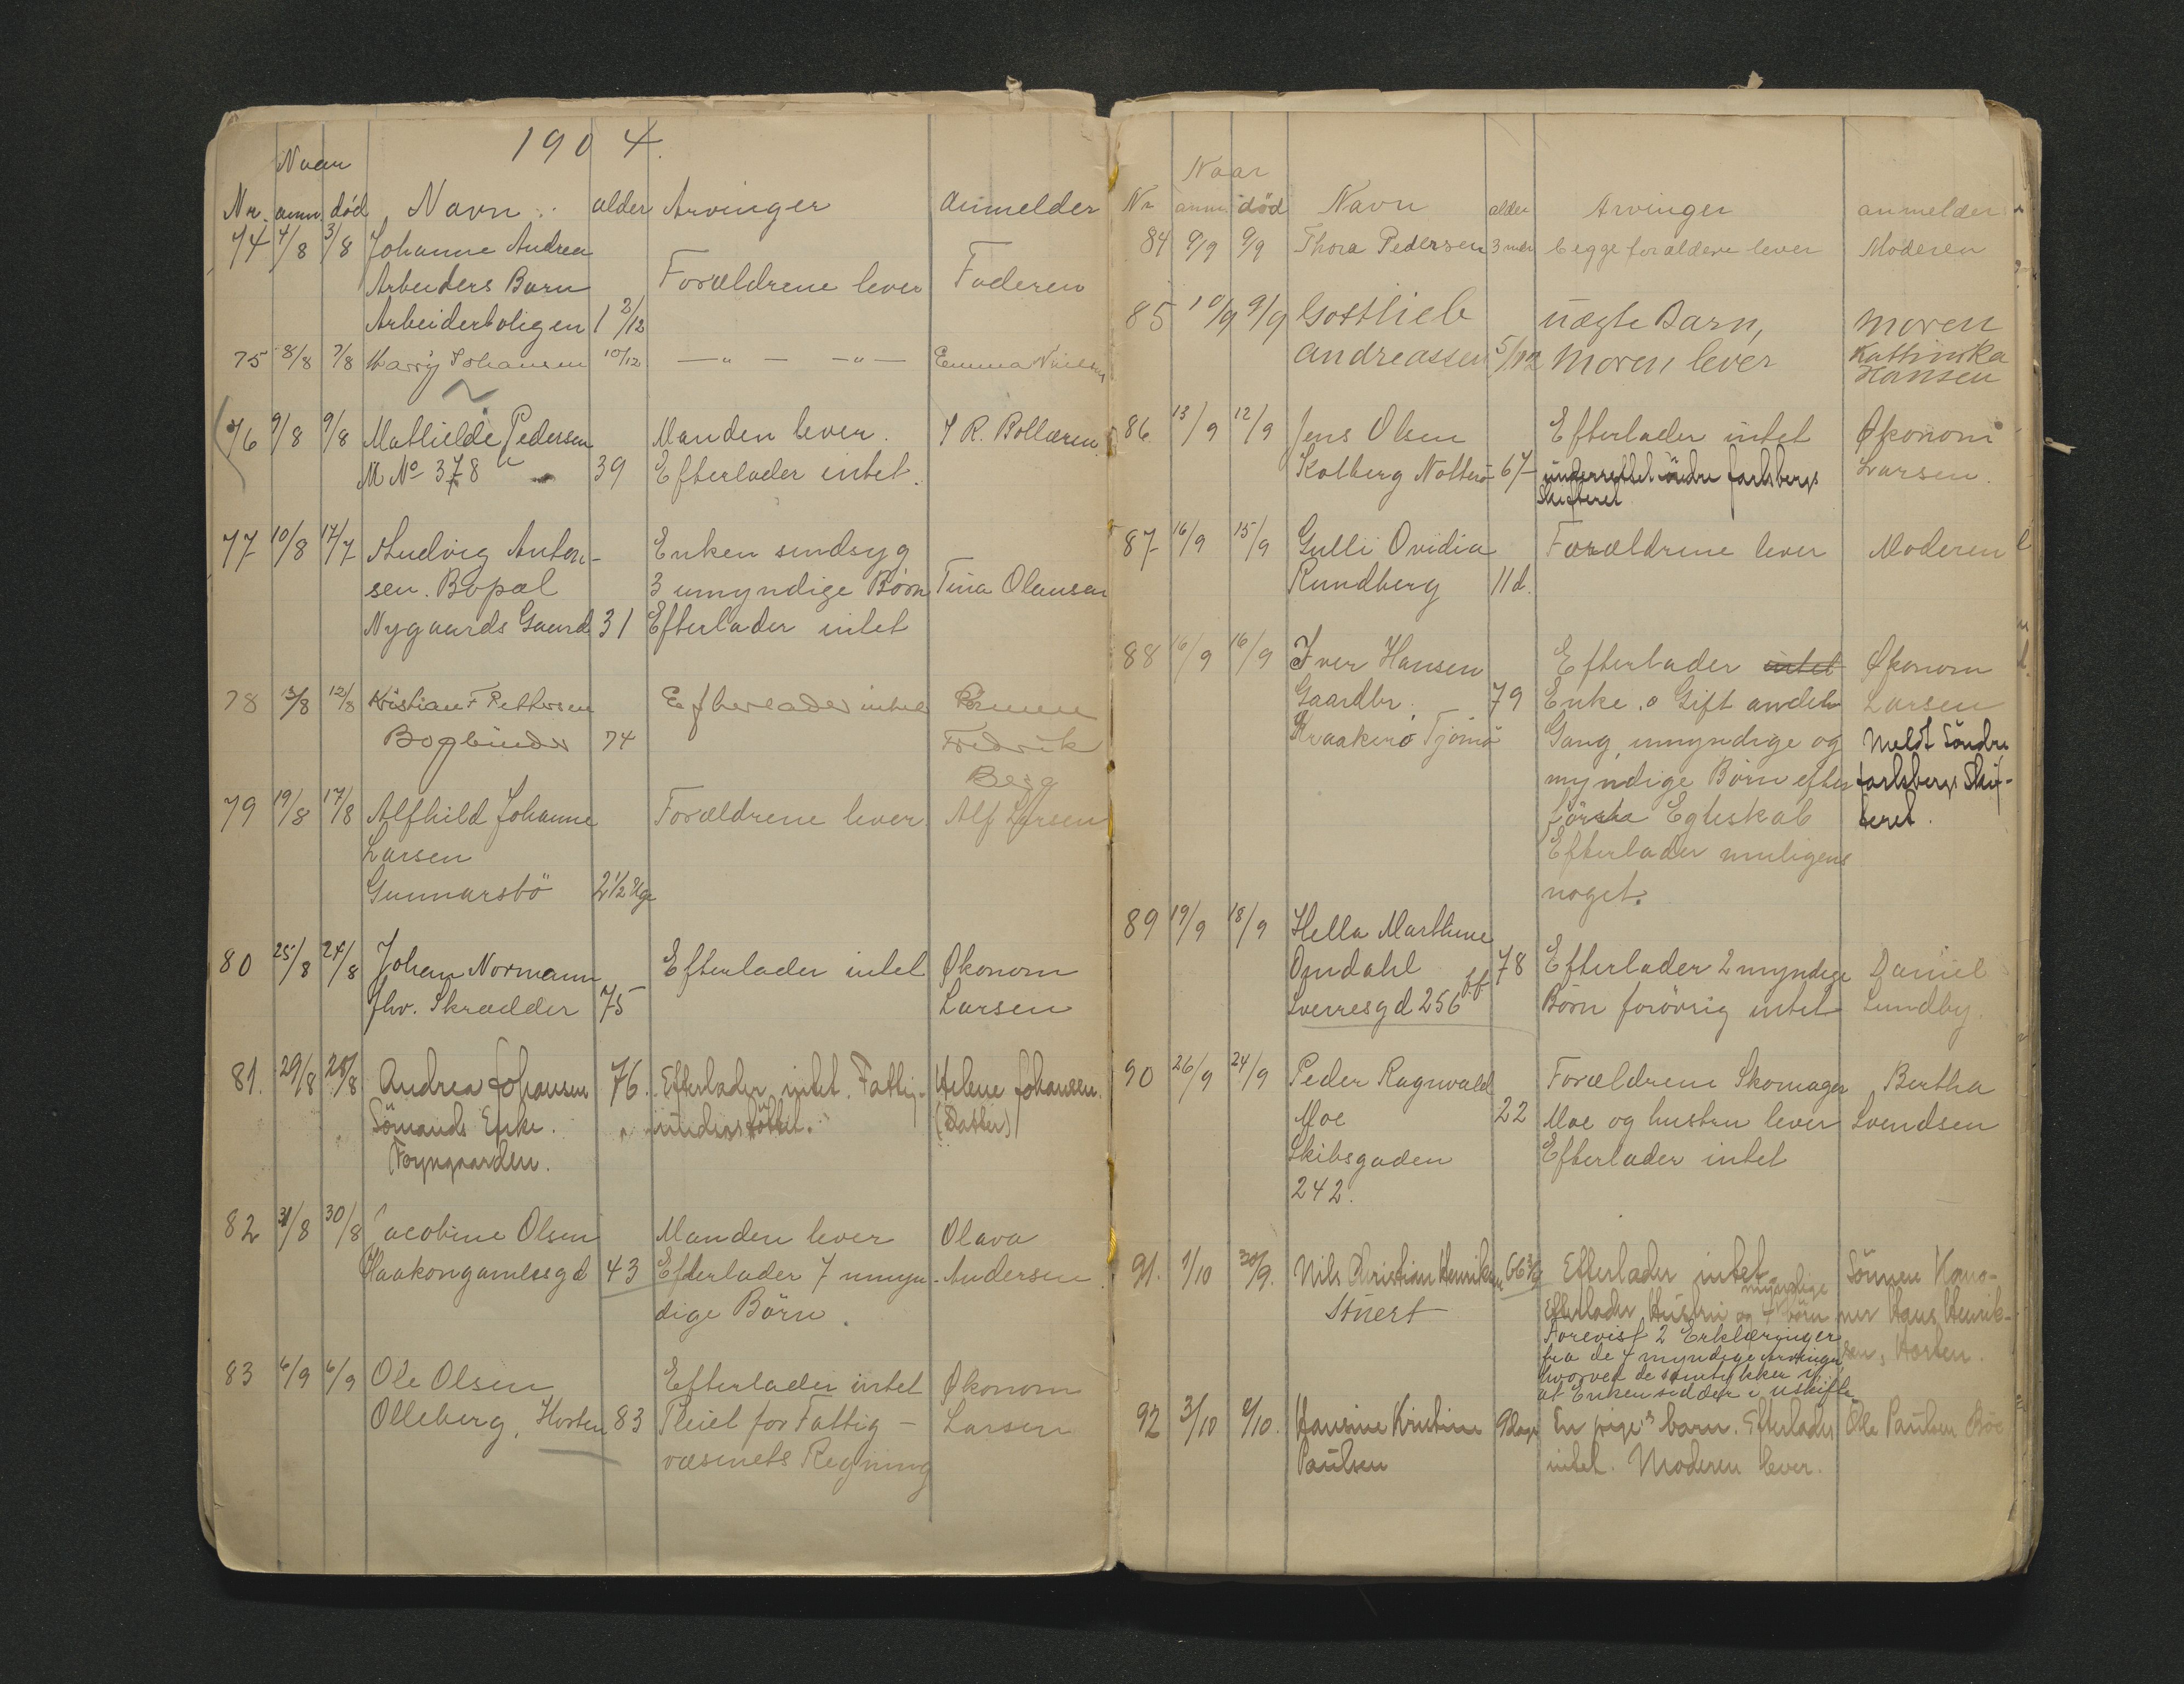 1904.
Naar
Nr. anm. död Navn. alder Arvinger Anmelder
74 4/8 3/8 Johanne Andrea
Arbeiders Barn Forældrene lever Faderen
Arbeiderboligen 1 2/12
75 8/8 7/8 Harry Johansen 10/12 — " — — " — Emma Nielsen
76 9/8 9/8 Mathilde Pedersen Manden lever. J R. Bollæren
M No 378 39 Efterlader intet.
77 10/8 17/7 Ludvig Anton- Enken sindsyg
sen. Bopæl 3 umyndige Börn Tina Olausen
Nygaards Gaard 31 Efterlader intet
78 13/8 12/8 Kristian F Pettersen Efterlader intet
Bogbinder 74 Fredrik
Berg
79 19/8 17/8 Alfhild Johanne Forældrene lever Alf Larsen
Larsen
Gunnarsbö 2 1/2 Uge
80 25/8 24/8 Johan Normann Efterlader intet Økonom
fhv. Skrædder 75 Larsen
81. 29/8 28/8 Andrea Johansen 76. Efterlader intet. Fattig- Helene Johansen.
Sömands Enke. understöttet. (Datter)
Foyngaarden.
82 31/8 30/8 Jacobine Olsen Manden lever Olava
Haakongamlesgd 43 Efterlader 7 umyn- Andersen
dige Börn.
83 6/9 6/9 Ole Olsen Efterlader intet Økonom
Olleberg, Horten 83 Pleiet for Fattig- Larsen
væsenets Regning
Naar
Nr anm. död Navn alder Arvinger anmelder
84 9/9 9/9 Thora Pedersen 3 mdr begge forældere lever Moderen
85 10/9 9/9 Gottlieb uægte Barn, moren
Andreassen 5/12 moren lever Kathinka
Hansen
86 13/9 12/9 Jens Olsen Efterlader intet Økonom
Kolberg Nötterö 67 underrettet söndre Jarlsbergs Larsen.
Skifteret
87 16/9 15/9 Gulli Ovidia Forældrene lever Moderen
Rundberg 11 d.
88 16/9 16/9 Iver Hansen Efterlader intet Økonom
Gaardbr. 79 Enke. o Gift anden Larsen
Kraakerö Tjömö Gang, umyndige og Meldt Söndre
myndige Börn efter Jarlsbergs Skif-
förste Egteskab teret.
Efterlader muligens
noget.
89 19/9 18/9 Hella Marthine
Omdahl 78 Efterlader 2 myndige Daniel
Sverresgd 256 ff Börn forövrig intet Lundby.
90 26/9 24/9 Peder Ragnvald Forældrene Skomager Bertha
Moe 22 Moe og hustru lever Svendsen
Skibsgaden Efterlader intet
242.
91. 1/10 30/9. Nils Christian Henriksen 66 Efterlader intet Sönnen Kano-
Stuert Efterlader Hustru og 7 myndige börn ner Hans Henrik-
Forevist 2 Erklæringer sen, Horten.
fra de 7 myndige Arvinger
hvorved de samtykker i
at Enken sidder i uskifte
92 3/10 2/10. Hansine Kristine 9 Dage En pige's barn. Efterlader Ole Paulsen Böe
Paulsen intet. Moderen lever.